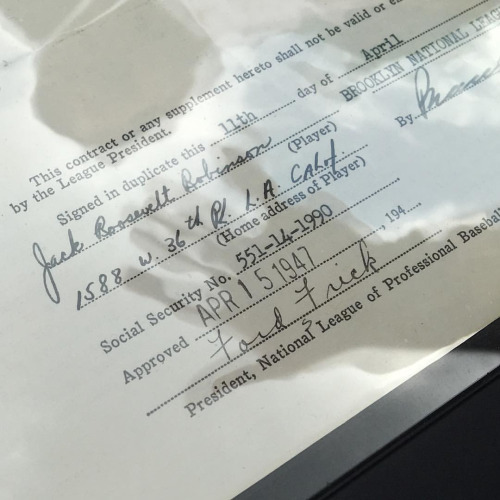 This contract or any supplement hereto shall not be valid or
by the League President.
Signed in duplicate this 11th day of April
BROOKLYN NATIONAL LEAGUE
Jack Roosevelt Robinson
(Player)
By
1588 W. 36th Pl. L.A. Calif.
(Home address of Player)
Social Security No. 551-14-1990
Approved APR 15 1947, 194
Ford Frick
President, National League of Professional Baseball